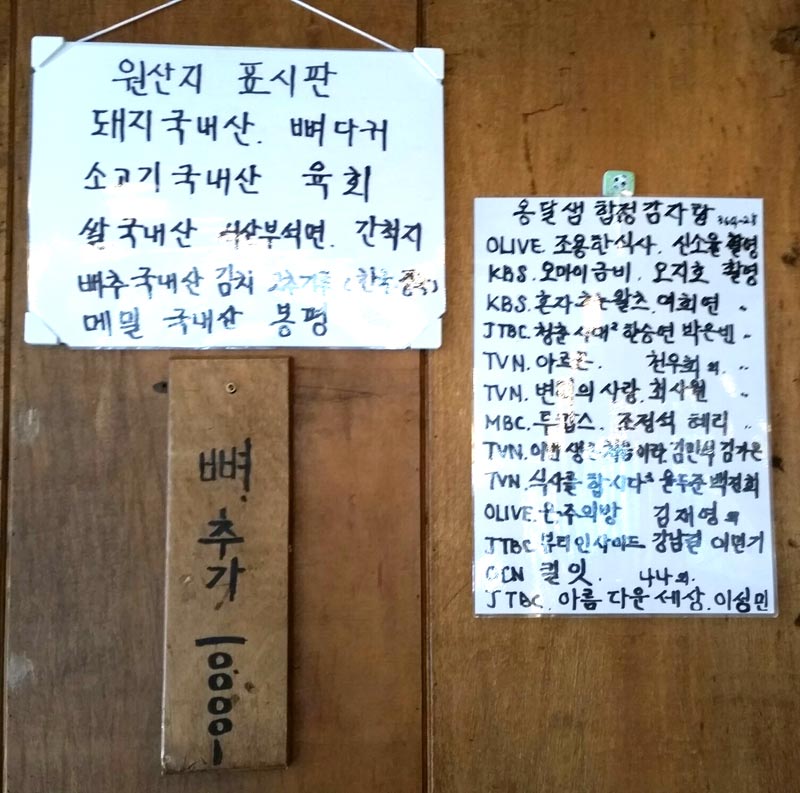 원산지 표시판
돼지국내산. 뼈다귀
소고기국내산 육회
쌀국내산 서산부석면. 간척지
배추국내산 김치 고추가루
메밀 국내산 봉평
뼈
추
가
一000一
옹달샘 합정감자탕 364-28
OLIVE. 조용한식사. 신소율 촬영
KBS. 오마이금비. 오지호 촬영
KBS. 혼자추는왈츠. 여회현 〃
JTBC. 청춘시대² 한승연 박은빈 〃
TVN. 아르곤. 천우희 외. 〃
TVN. 변혁의 사랑. 최시원 〃
MBC. 투깝스. 조정석 혜리 〃
TVN. 이번생은처음이라. 김민석 김가은
TVN. 식사를 합시다³ 윤두준 백진희
OLIVE. 은주의방 김재영 외
JTBC 뷰티인사이드 강남길 이민기
OCN 킬잇. 나나외.
JTBC. 아름다운세상. 이청민